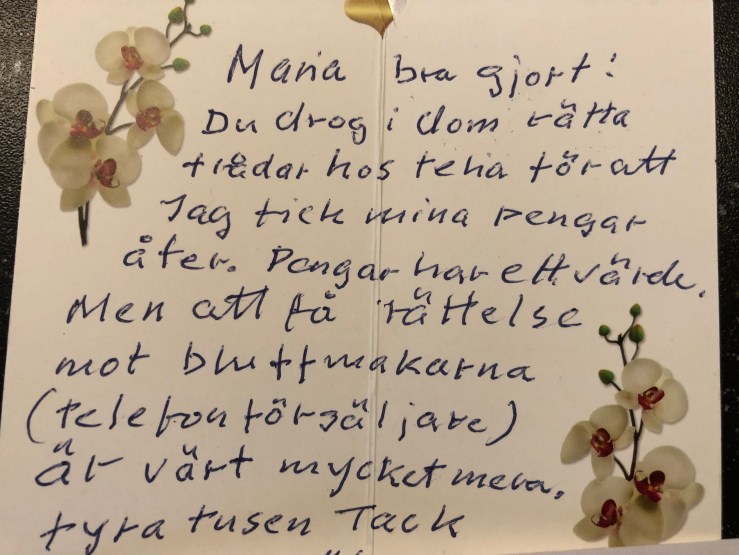 Maria bra gjort!
Du drog i dom rätta
trådar hos telia för att
Jag fick mina pengar
åter. Pengar har ett värde.
Men att få rättelse
mot bluffmakarna
(telefonförsäljare)
är värt mycket mera.
fyra tusen Tack